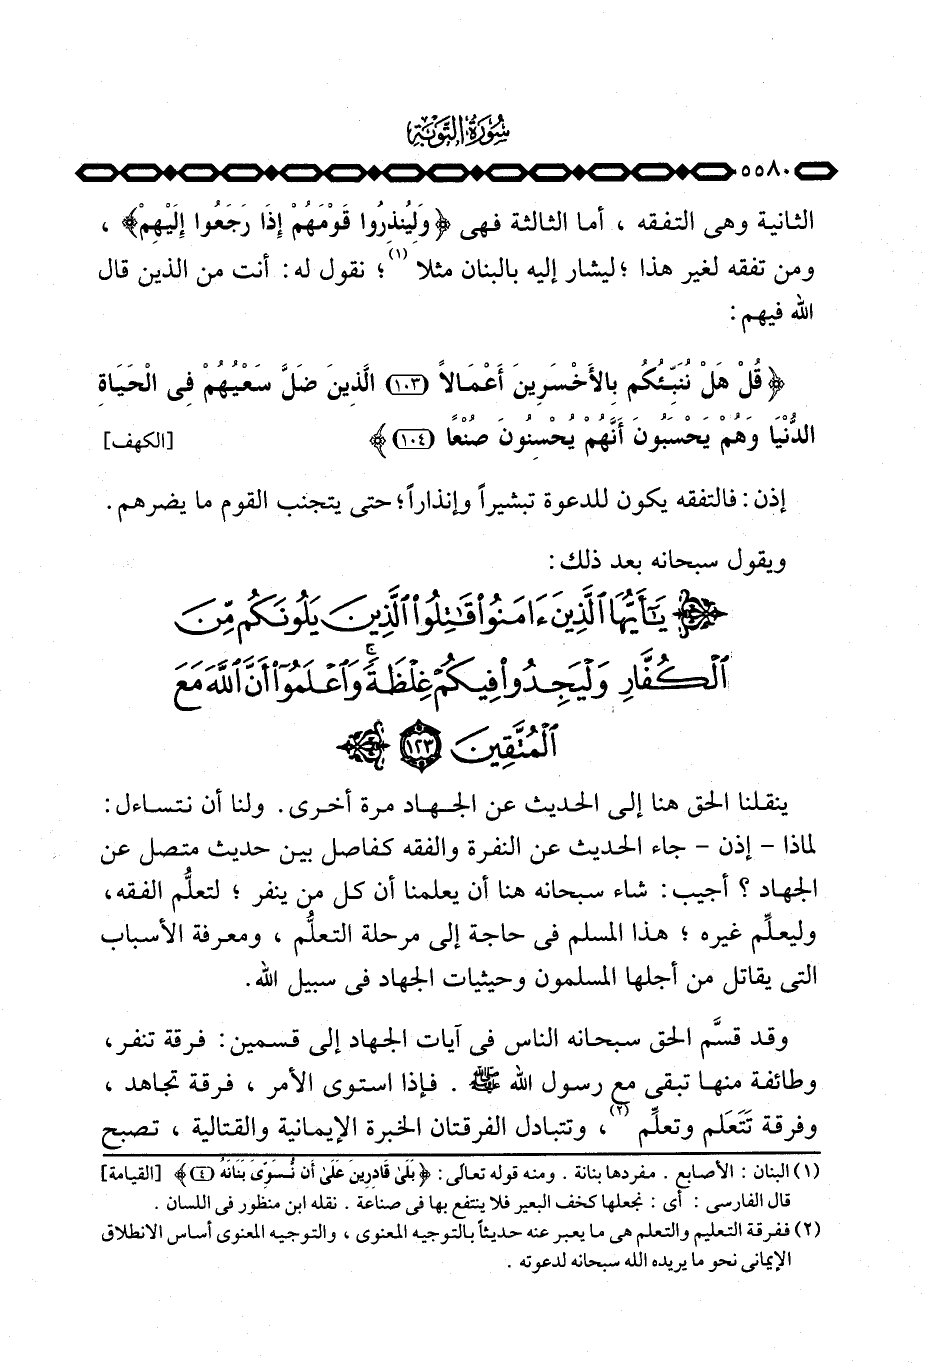 سُورَةُ التَّوْبَةِ
٥٥٨٠
الثانية وهى التفقه ، أما الثالثة فهى ﴿وَلِيُنذِرُوا قَوْمَهُمْ إِذَا رَجَعُوا إِلَيْهِمْ﴾ ،
ومن تفقه لغير هذا ؛ ليشار إليه بالبنان مثلا (١) ؛ نقول له : أنت من الذين قال
الله فيهم :
﴿قُلْ هَلْ نُنَبِّئُكُم بِالأَخْسَرِينَ أَعْمَالاً (١٠٣) الَّذِينَ ضَلَّ سَعْيُهُمْ فِى الْحَيَاةِ
الدُّنْيَا وَهُمْ يَحْسَبُونَ أَنَّهُمْ يُحْسِنُونَ صُنْعًا (١٠٤)﴾ [الكهف]
إذن : فالتفقه يكون للدعوة تبشيراً وإنذاراً ؛ حتى يتجنب القوم ما يضرهم .
ويقول سبحانه بعد ذلك :
﴿يَٰٓأَيُّهَا ٱلَّذِينَ ءَامَنُوا۟ قَٰتِلُوا۟ ٱلَّذِينَ يَلُونَكُم مِّنَ
ٱلْكُفَّارِ وَلْيَجِدُوا۟ فِيكُمْ غِلْظَةً ۚ وَٱعْلَمُوٓا۟ أَنَّ ٱللَّهَ مَعَ
ٱلْمُتَّقِينَ (١٢٣)﴾
ينقلنا الحق هنا إلى الحديث عن الجهاد مرة أخرى . ولنا أن نتساءل :
لماذا - إذن - جاء الحديث عن النفرة والفقه كفاصل بين حديث متصل عن
الجهاد ؟ أجيب : شاء سبحانه هنا أن يعلمنا أن كل من ينفر ؛ لتعلُّم الفقه ،
وليعلِّم غيره ؛ هذا المسلم فى حاجة إلى مرحلة التعلُّم ، ومعرفة الأسباب
التى يقاتل من أجلها المسلمون وحيثيات الجهاد فى سبيل الله .
وقد قسَّم الحق سبحانه الناس فى آيات الجهاد إلى قسمين : فرقة تنفر ،
وطائفة منها تبقى مع رسول الله ﷺ . فإذا استوى الأمر ، فرقة تجاهد ،
وفرقة تَتَعَلم وتعلِّم (٢) ، وتتبادل الفرقتان الخبرة الإيمانية والقتالية ، تصبح
(١) البنان : الأصابع . مفردها بنانة . ومنه قوله تعالى : ﴿بَلَىٰ قَادِرِينَ عَلَىٰ أَن نُّسَوِّىَ بَنَانَهُ (٤)﴾ [القيامة]
قال الفارسى : أى : نجعلها كخف البعير فلا ينتفع بها فى صناعة . نقله ابن منظور فى اللسان .
(٢) ففرقة التعليم والتعلم هى ما يعبر عنه حديثاً بالتوجيه المعنوى ، والتوجيه المعنوى أساس الانطلاق
الإيمانى نحو ما يريده الله سبحانه لدعوته .